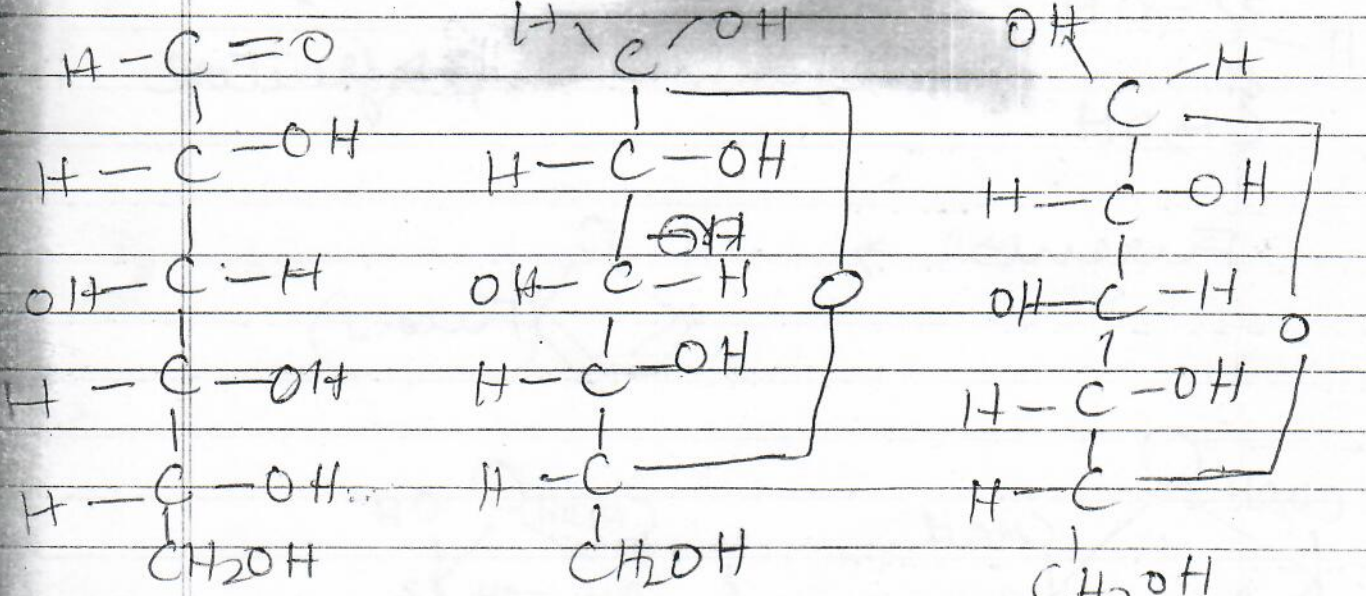 H - C = O
H - C - OH
OH - C - H
H - C - OH
H - C - OH
CH2OH
H \ C / OH
H - C - OH
OH - C - H
O
H - C - OH
H - C
CH2OH
OH \ C - H
H - C - OH
OH - C - H
O
H - C - OH
H - C
CH2OH